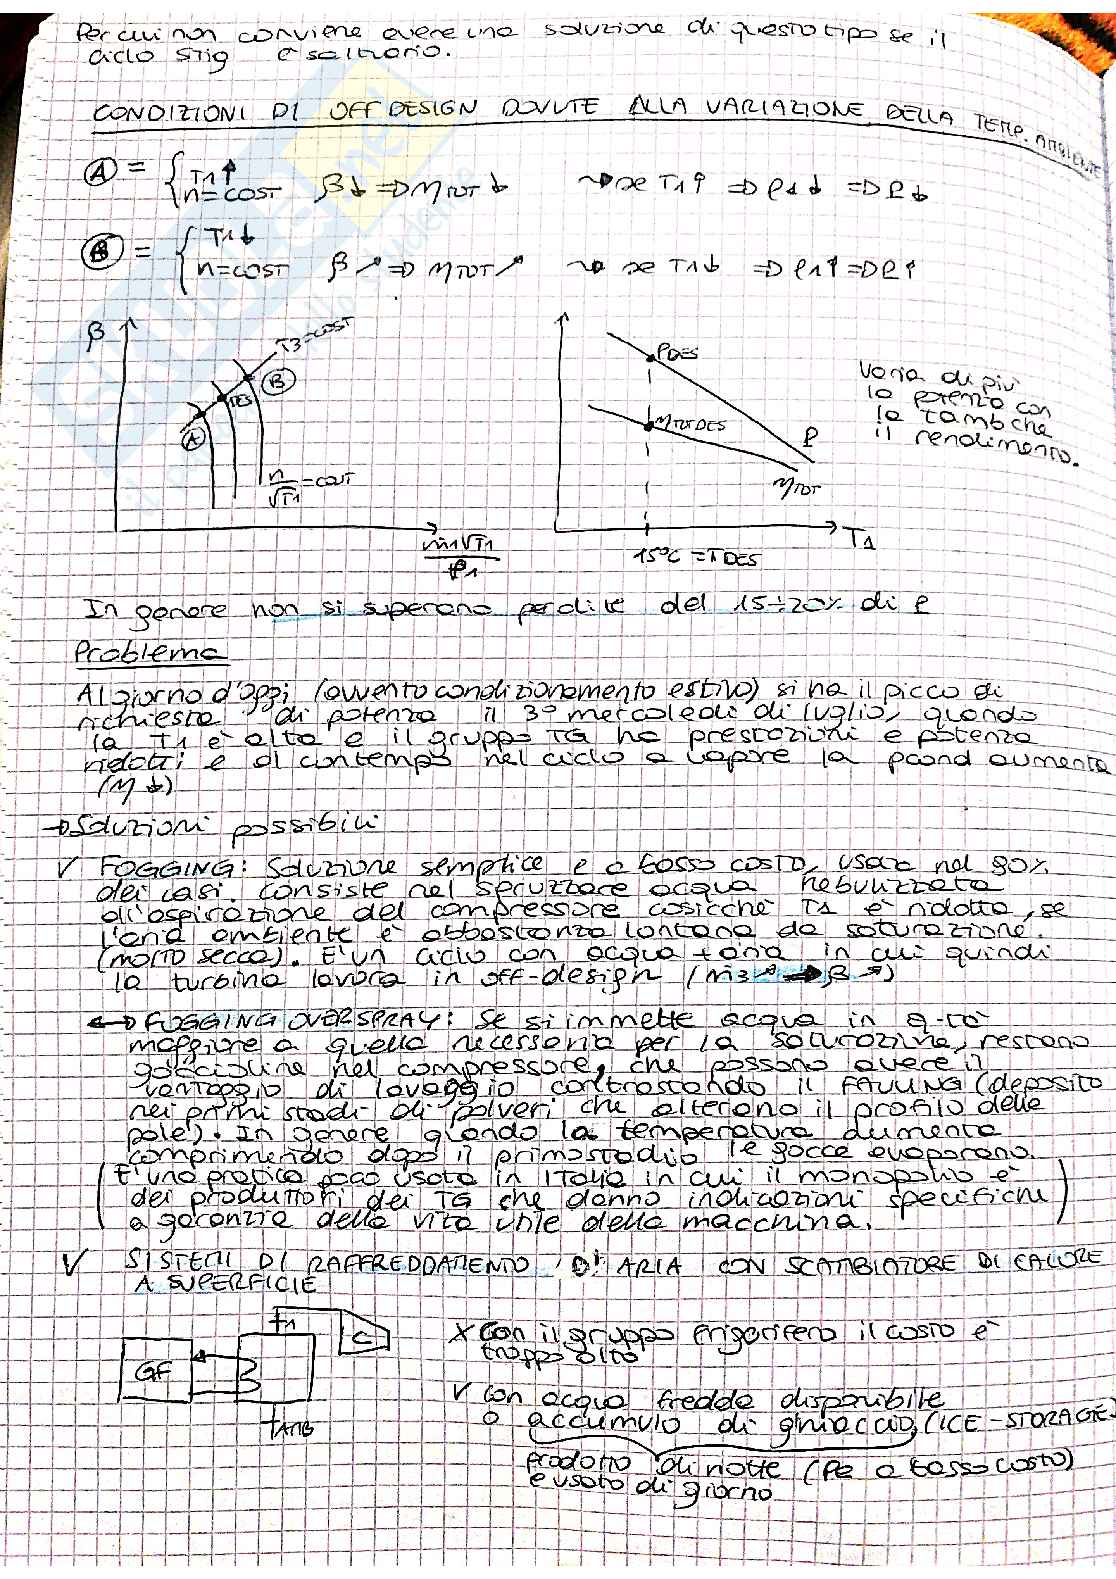 Per cui non conviene avere una soluzione di questo tipo se il
ciclo STIG è saltuario.
CONDIZIONI DI OFF DESIGN DOVUTE ALLA VARIAZIONE DELLA TEMP. AMBIENTE
Ⓐ = { T1↑ n=COST β↓ => ηTOT ↓ ~> se T1↑ => ρ1↓ => P↓
Ⓑ = { T1↓ n=COST β↗ => ηTOT↗ ~> se T1↓ => ρ1↑ => P↑
β
T3=COST
Ⓑ
DES
Ⓐ
n/√T1 = COST
ṁ1√T1/P1
PDES
ηTOT DES
P
ηTOT
15°C = TDES
T1
Varia di più
la potenza con
la Tamb che
il rendimento.
In genere non si superano perdite del 15÷20% di P
Problema
Al giorno d'oggi (avvento condizionamento estivo) si ha il picco di
richiesta di potenza il 3° mercoledì di luglio, quando
la T1 è alta e il gruppo TG ha prestazioni e potenza
ridotti e al contempo nel ciclo a vapore la pcond aumenta
(η↓)
→Soluzioni possibili
V FOGGING: Soluzione semplice e a basso costo, usata nel 90%
dei casi. Consiste nel spruzzare acqua nebulizzata
all'aspirazione del compressore cosicchè T1 è ridotta, se
l'aria ambiente è abbastanza lontana da saturazione.
(molto secca). E' un ciclo con acqua + aria in cui quindi
la turbina lavora in off-design (ṁ3↗ → β↗)
↔ FOGGING OVERSPRAY: Se si immette acqua in q-tà
maggiore a quella necessaria per la saturazione, restano
goccioline nel compressore, che possono avere il
vantaggio di lavaggio contrastando il FAULING (deposito
nei primi stadi di polveri che alterano il profilo delle
pale). In genere quando la temperatura aumenta
comprimendo dopo il primo stadio le gocce evaporano.
(E' una pratica poco usata in ITalia in cui il monopolio è
dei produttori dei TG che danno indicazioni specifiche
a garanzia della vita utile della macchina.)
V SISTEMI DI RAFFREDDAMENTO D'ARIA CON SCAMBIATORE DI CALORE
A SUPERFICIE
t1
C
GF
tAMB
X Con il gruppo frigorifero il costo è
troppo alto
V con acqua fredda disponibile
o accumulo di ghiaccio (ICE-STORAGE)
prodotto di notte (Pe a basso costo)
e usato di giorno